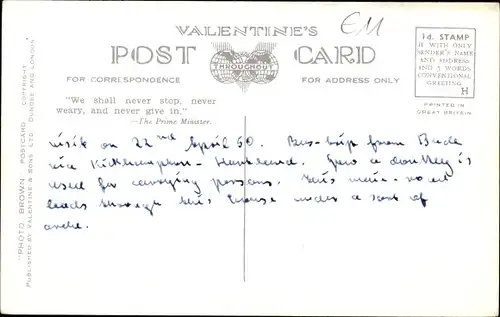 VALENTINE'S
EM
POST CARD
THROUGHOUT
FOR CORRESPONDENCE
FOR ADDRESS ONLY
1d. STAMP
IF WITH ONLY
SENDER'S NAME
AND ADDRESS
AND 5 WORDS
CONVENTIONAL
GREETING
H
PRINTED IN
GREAT BRITAIN
"We shall never stop, never
weary, and never give in."
—The Prime Minister.
visit on 22nd April 60. Bus-trip from Bude
via Kilkhampton - Hartland. a donkey is
used for carrying persons. This main-road
leads through this house under a sort of
arche.
"PHOTO BROWN" POSTCARD COPYRIGHT
PUBLISHED BY VALENTINE & SONS LTD. DUNDEE AND LONDON